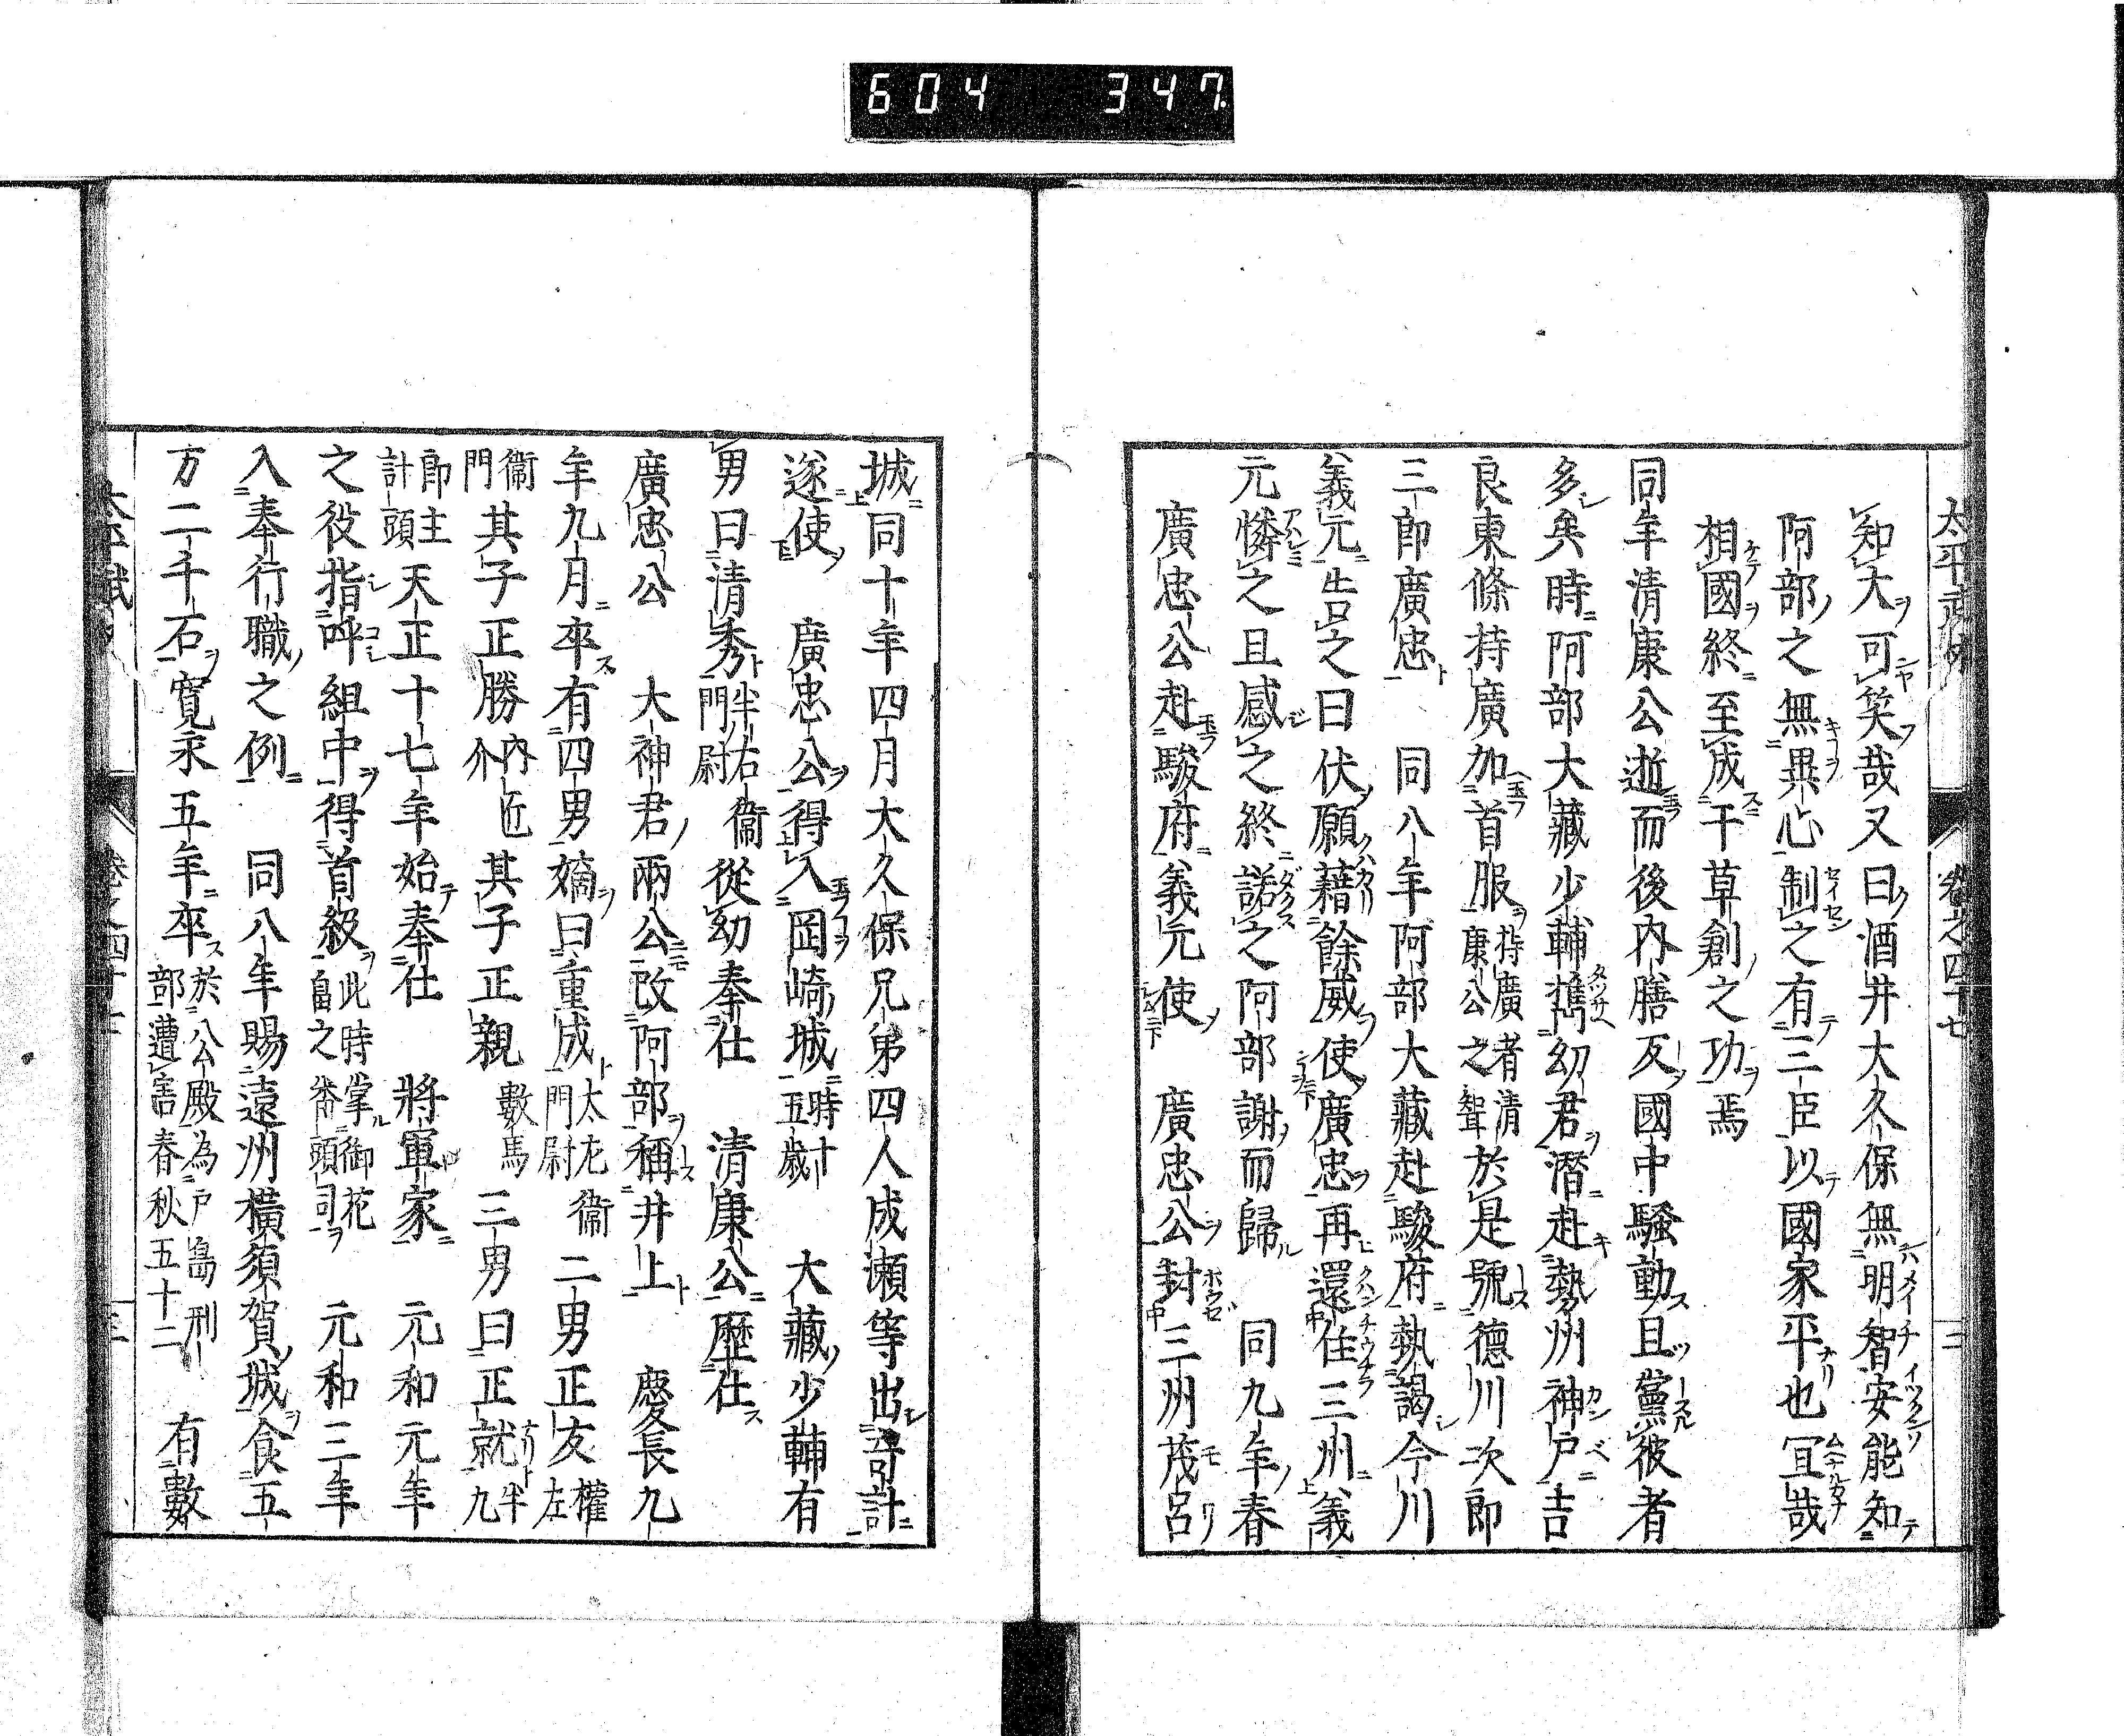 604 347
卷之四十七
知大可笑哉又曰酒井大久保無明智安能知
阿部之無異心制之有三臣以國家平也宜哉
相國終至成干草創之功焉
同年清康公逝而後内膳反國中騷動且黨彼者
多矣時阿部大藏少輔携幼君潛赴勢州神戸吉
良東條持廣加首服持廣者清康公之聟於是號德川次郎
三郎廣忠 同八年阿部大藏赴駿府執謁今川
義元告之曰伏願藉餘威使廣忠再還住三州義
元憐之且感之終諾之阿部謝而歸 同九年春
廣忠公赴駿府義元使 廣忠公封三州茂呂
城同十年四月大久保兄弟四人成瀬等出奇計
遂使 廣忠公得入岡崎城時十五歳 大藏少輔有
男曰清秀半右衞門尉從幼奉仕 清康公歷仕
廣忠公 大神君兩公改阿部稱井上 慶長九
年九月卒有四男嫡曰重成太左衞門尉二男正友權左
衞門其子正勝内匠介其子正親數馬三男曰正就半九
郎主計頭天正十七年始奉仕 將軍家 元和元年
之役指呼組中得首級此時掌御花畠之番頭司 元和三年
入奉行職之例 同八年賜遠州橫須賀城食五
万二千石寛永五年卒於公殿為戸島刑部遭害春秋五十二 有數